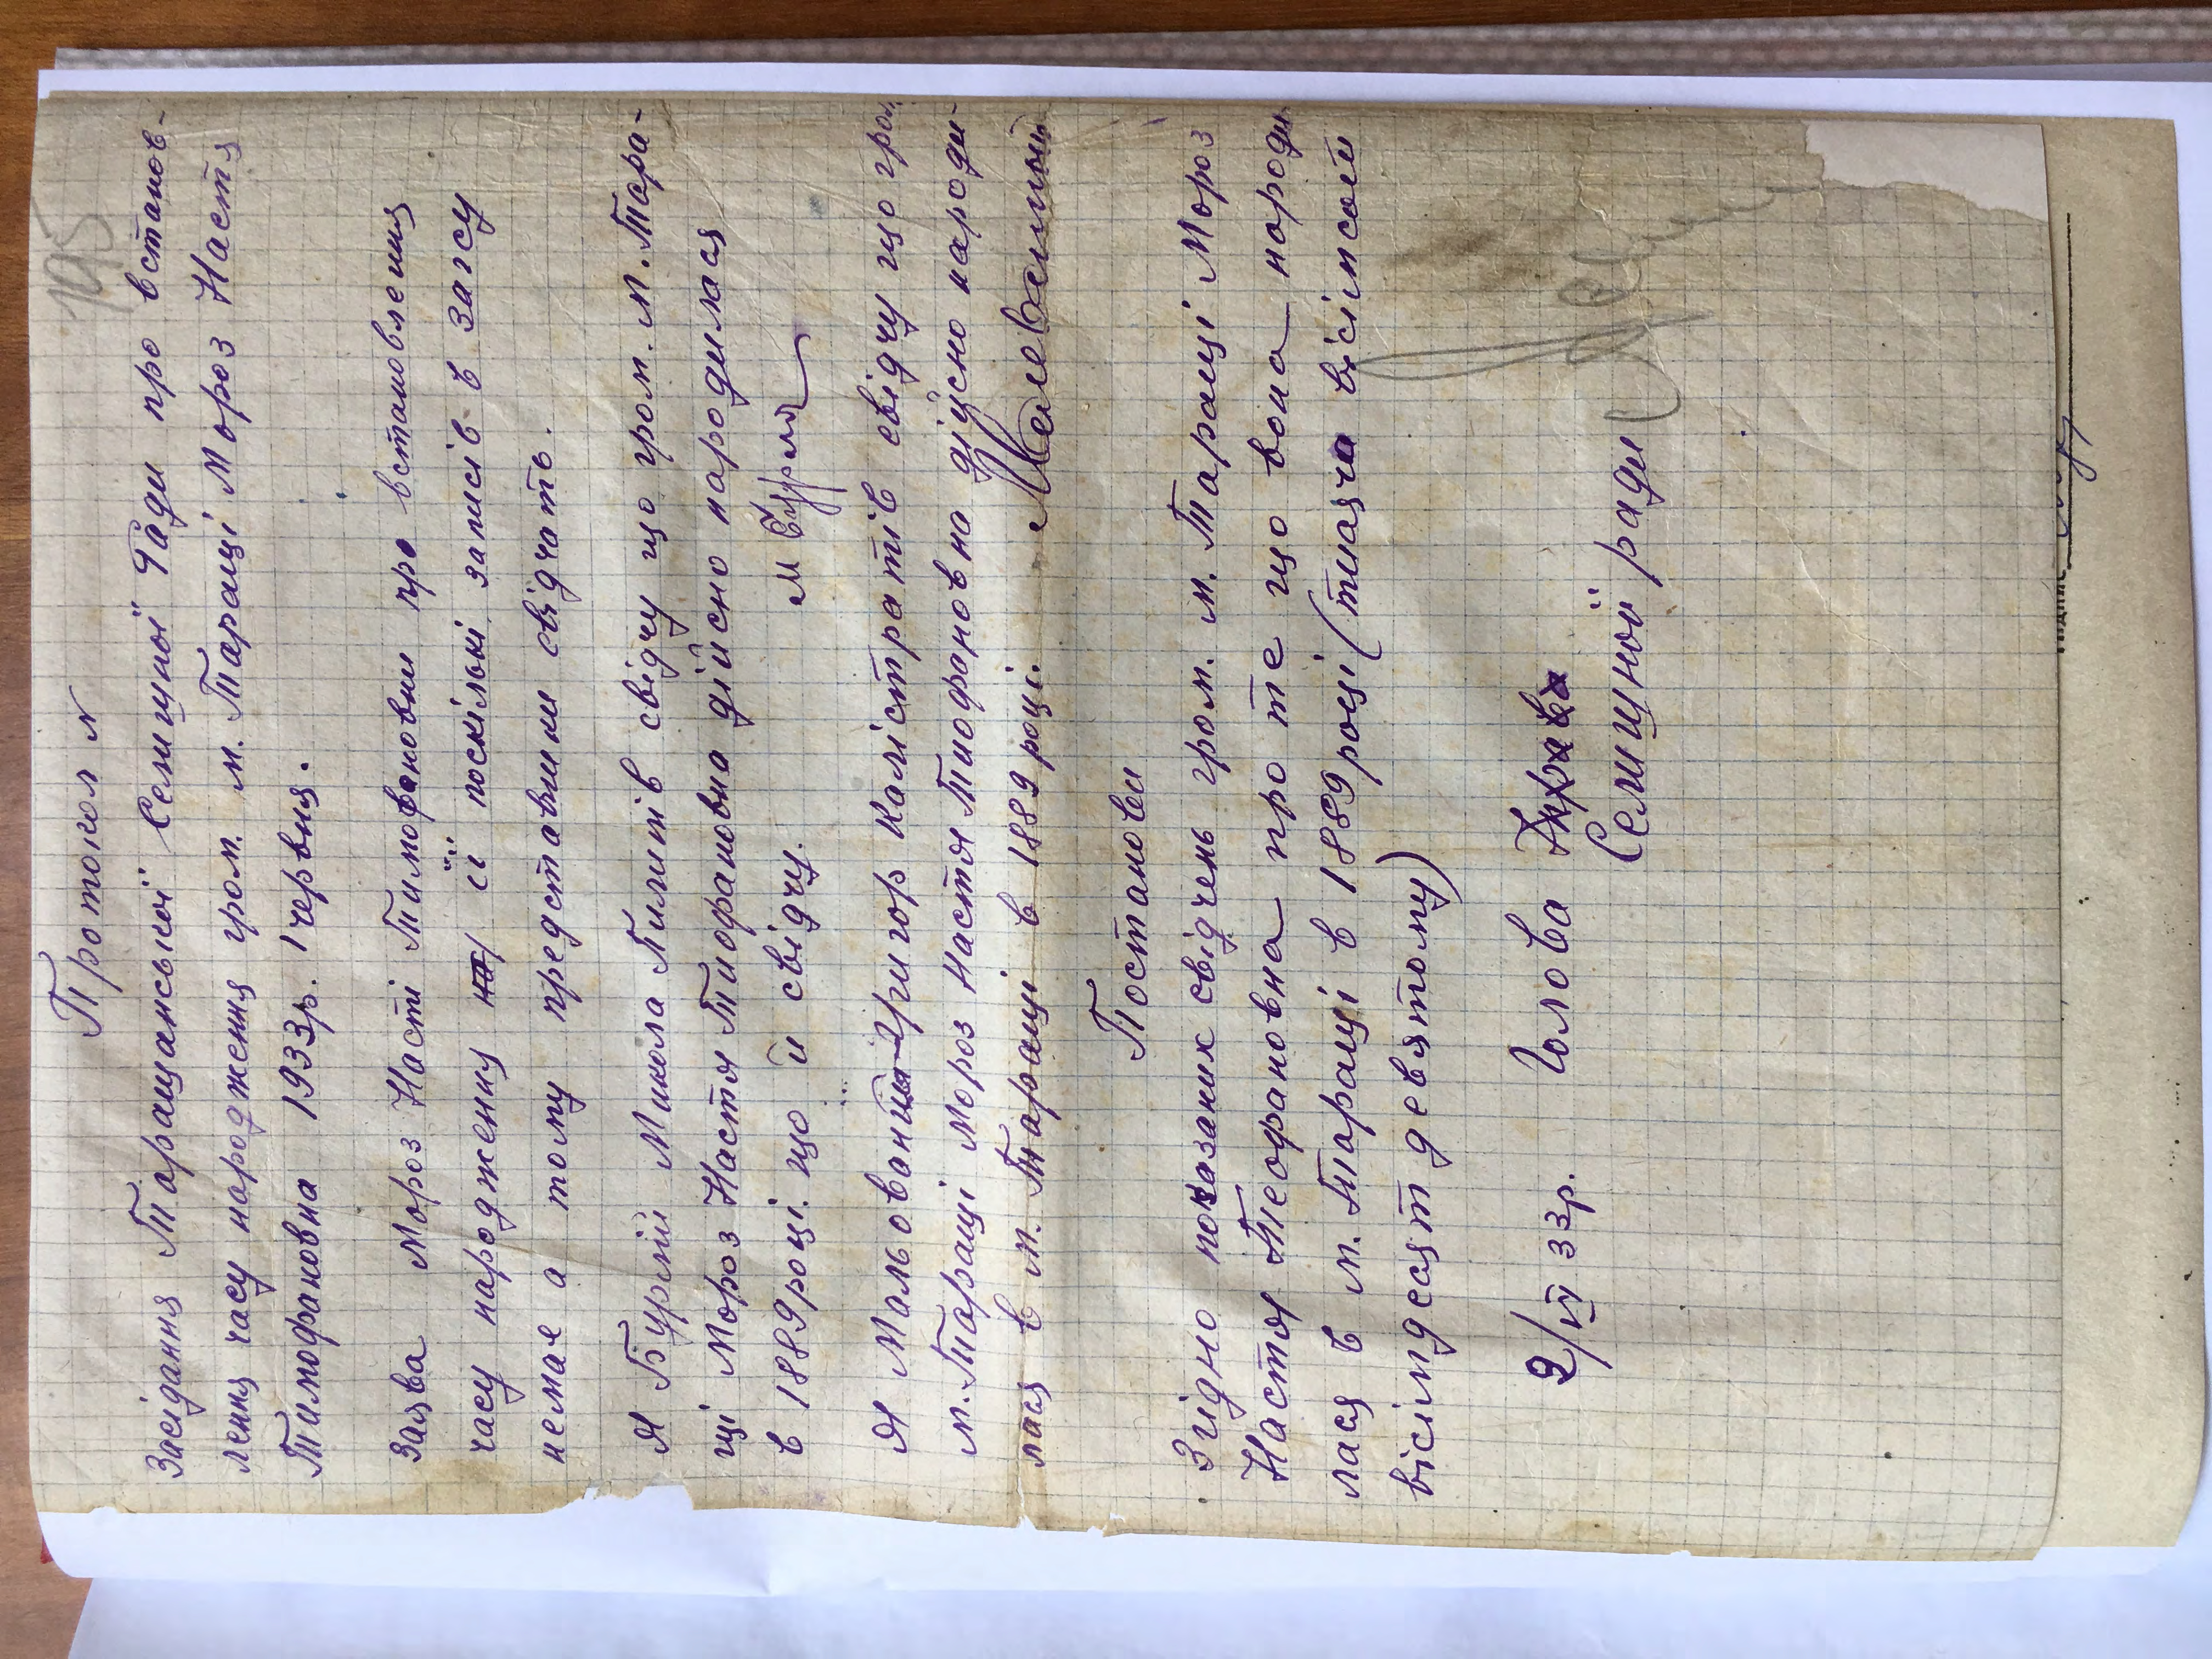 195
Протокол №
Засідання Таращанської Селищної Ради про встанов-
лення часу народження гром. м. Таращі Мороз Настя
Тимофановна 1933р. 1 червня.
Заява Мороз Насті Тимофановни про встановлення
часу народження її поскільки записів в загсу
немає а тому представники свідчать.
Я Бурлій Микола Пилипів свідчу що гром. м. Тара-
щі Мороз Настя Тиофановна дійсно народилася
в 1889 році. що й свідчу. М Бурлій
Я Мальований Григор Калістратів свідчу що гром.
м. Таращі Мороз Настя Тиофановна дійсно народи-
лася в м. Таращі в 1889 році. Малеваный
Постанова
Згідно показаних свідчень гром. м. Таращі Мороз
Настя Теофановна про те що вона народи
лася в м. Таращі в 1889 році (тисяча вісімсот
вісімдесят девятому)
2/VI 33р. Голова
Селищної ради